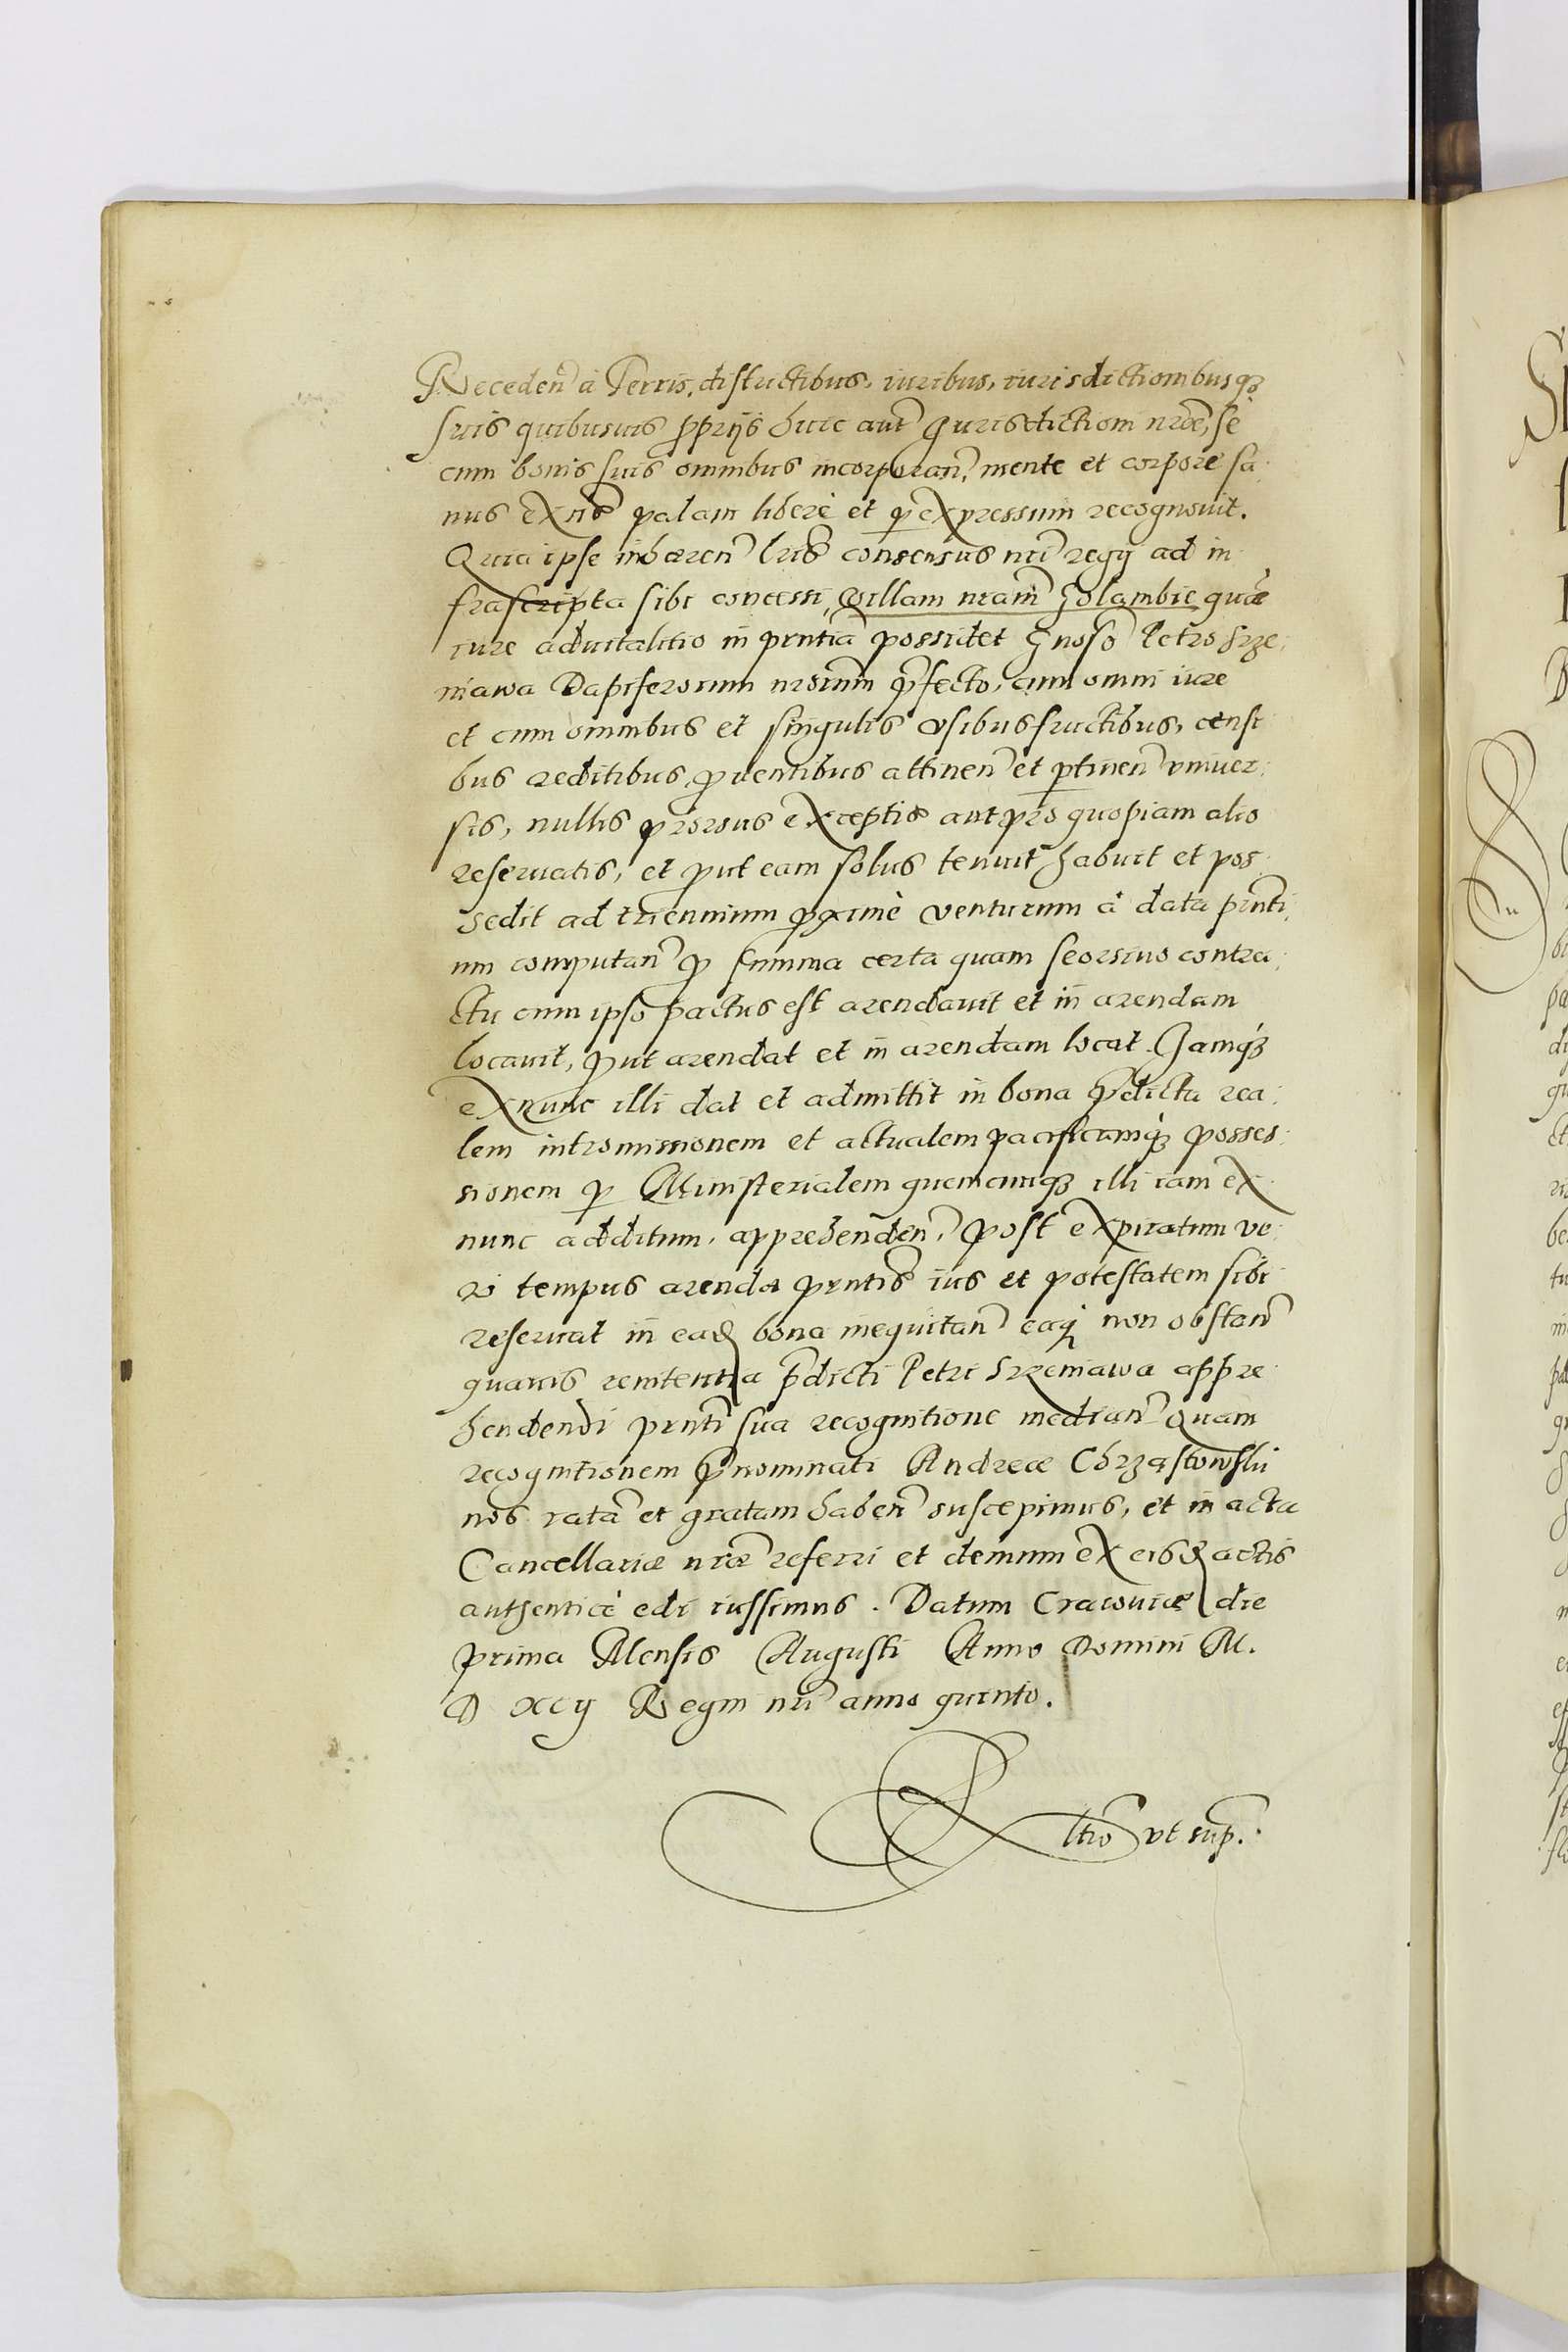 Receden̄ à Terris, districtibus, iuribus, iurisdictionibusq3
suis quibusuis ꝓprijs huic aut̄ Jurisdictioni nr̄æ, se
cum bonis suis omnibus incorporan̄, mente et corpore sa
nus Ex nūc palam liberè et ꝑ expressum recognouit.
Quia ipse inhæren̄ lr̄is consensus nr̄i regij ad in
frascripta sibi concessi, villam nram̄ Golambie quæ
iure aduitalitio in pn̄tia possidet Gnoso Petro Srze
niawa Dapiferorum nrorum p̄fecto, cum omni iure
et cum omnibus et singulis vsibusfructibus, censi
bus reditibus, ꝓuentibus attinen̄ et ꝑtinen̄ vniuer
sis, nullis prorsus exceptis aut pro quopiam alio
reseruatis, et ꝓut eam solus tenuit habuit et pos
sedit ad triennium ꝓximè venturum à data prn̄ti
um computan̄ ꝓ summa certa quam seorsiuo contra
ctu cum ipso pactus est arendauit et in arendam
locauit, ꝓut arendat et in arendam locat. Jamq3
ex nunc illi dat et admittit in bona p̄dicta rea
lem intromissionem et actualem pacificamq3 posses
sionem ꝑ Ministerialem quemcunq3 illi iam ex
nunc additum, apprehenden̄, Post expiratum ve
ro tempus arendæ prn̄tis ius et potestatem sibi
reseruat in ead bona inequitan̄ eaq3 non obstan̄
quauis renitentia p̄dicti Petri Srzeniawa appre
hendendi prn̄ti sua recognitione median̄ Quam
recognitionem p̄nominati Andreæ Chrząstowski
nos ratā et gratam haben̄ suscepimus, et in acta
Cancellariæ nr̄æ referri et demum ex eisd actis
authenticè edi iussimus. Datum Cracouiæ die
prima Mensis Augusti Anno Domini M.
D XCij Regni nr̄i anno quinto.
Rltio vt sup.